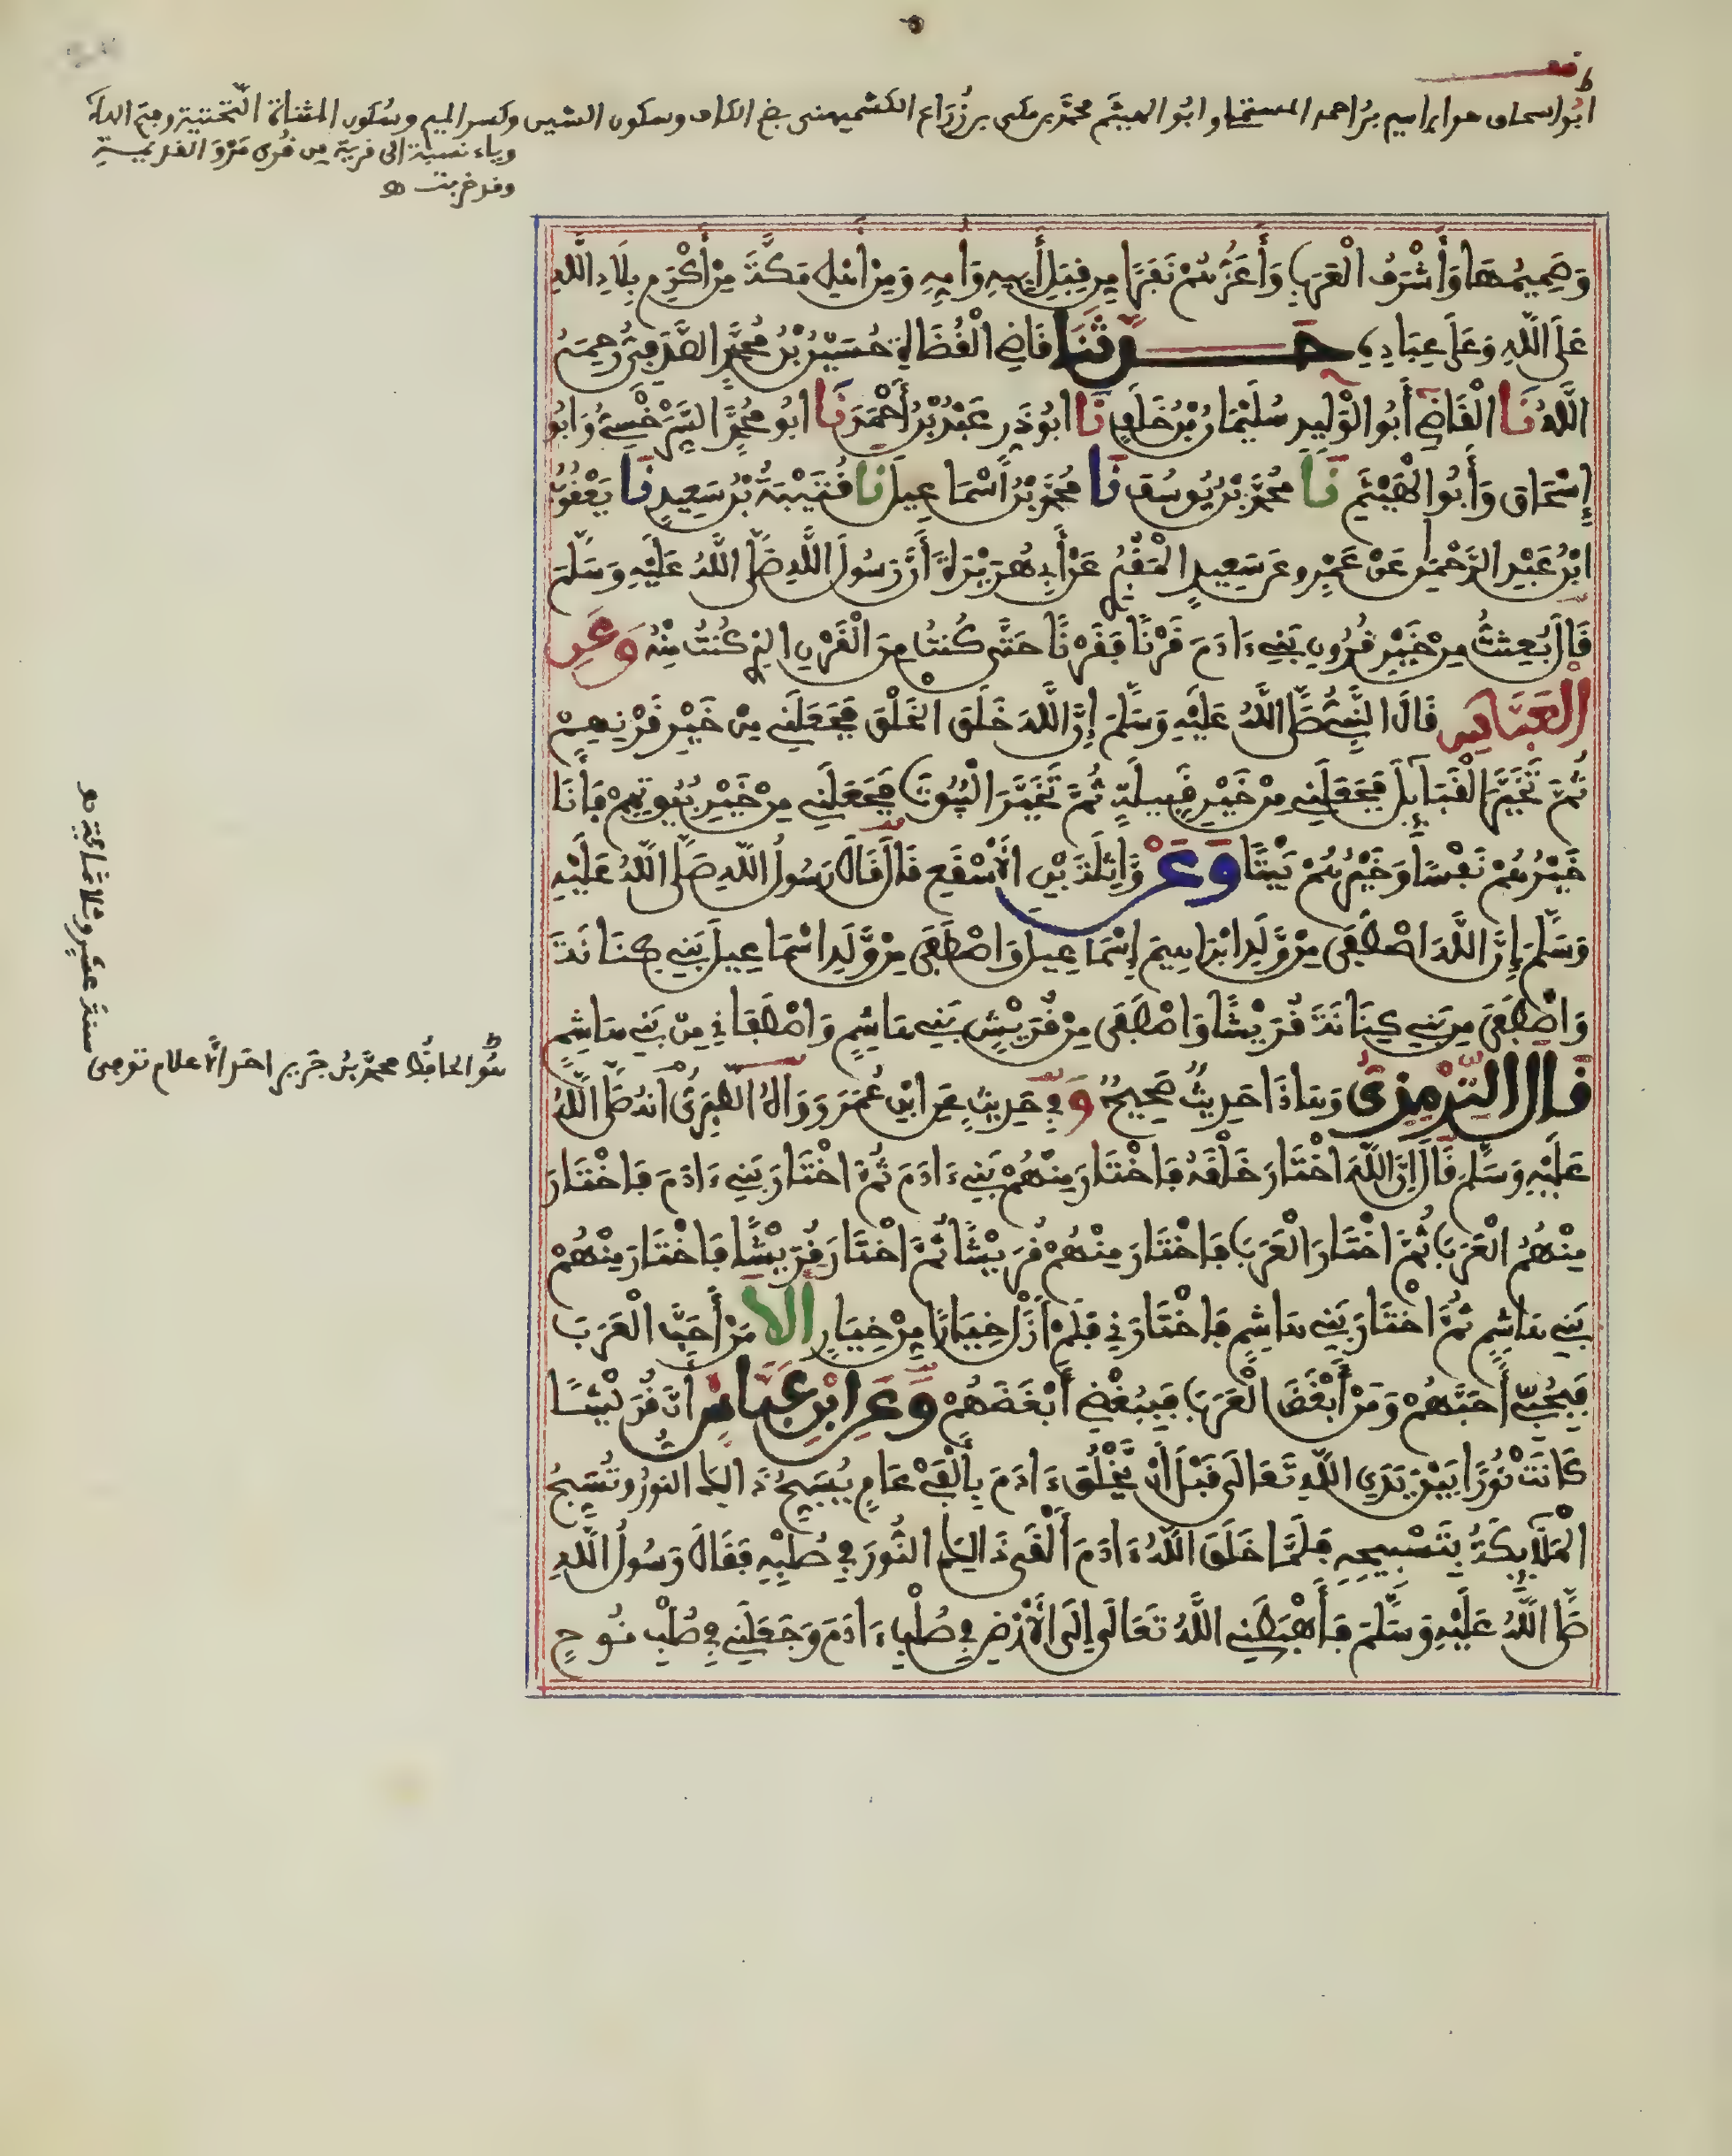 ابُو اسحاق هو ابراهيم بْرُ احمد المستملي وابُو الهيثم محمَّد بن مكى بن زُرَاع الكشميهنى بضم الكاف وسكون الشين وكسر الميم وسُكون المثناة التَّحتية وفتح الهاء
وياء نسبة الى قرية من قُرى مَرْوَ القديمة
وقد خربت هـ
وَصَمِيمُهَا وَأَشْرَفُ الْعَرَبِ وَأَعَزُّهُمْ نَفَرًا مِن قِبَلِ أَبِيهِ وَأُمِّهِ وَمِنْ أَهْلِ مَكَّةَ مِنْ أَكْرَمِ بِلَادِ اللَّهِ
عَلَى اللَّهِ وَعَلَى عِبَادِهِ حَدَّثَنَا قَاضِي الْقُضَاةِ حُسَيْنُ بْنُ مُحَمَّدٍ الصَّدَفِيُّ رَحِمَهُ
اللَّهُ نَا الْقَاضِي أَبُو الْوَلِيدِ سُلَيْمَانُ بْنُ خَلَفٍ نَا ابُو ذَرٍ عَبْدُ بْنُ أَحْمَدَ نَا ابُو مُحَمَّدٍ السَّرَخْسِيُّ وَابُو
إِسْحَاق وَأَبُو الْهَيْثَمِ نَا مُحَمَّدُ بْنُ يُوسُفَ نَا مُحَمَّدُ بْنُ أَسْمَاعِيلَ نَا قُتَيْبَةُ بْنُ سَعِيدٍ نَا يَعْقُوبُ
ابْنُ عَبْدِ الرَّحْمَنِ عَنْ عَمْرٍو عَن سَعِيدٍ الْمَقْبُرِيِّ عَنْ أَبِي هُرَيْرَةَ أَنَّ رَسُولَ اللَّهِ صَلَّى اللَّهُ عَلَيْهِ وَسَلَّمَ
قَالَ بُعِثْتُ مِنْ خَيْرِ قُرُونِ بَنِي ءَادَمَ قَرْنًا فَقَرْنًا حَتَّى كُنتُ مِنَ الْقَرْنِ الذِي كُنْتُ مِنْهُ وَعَنِ
الْعَبَّاسِ قَالَ النَّبِيُّ صَلَّى اللَّهُ عَلَيْهِ وَسَلَّمَ إِنَّ اللَّهَ خَلَقَ الْخَلْقَ فَجَعَلَنِي مِنْ خَيْرِهِمْ مِنْ خَيْرِ قَرْنِهِمْ
ثُمَّ تَخَيَّرَ الْقَبَائِلَ فَجَعَلَنِي مِنْ خَيْرِ قَبِيلَةٍ ثُمَّ تَخَيَّرَ الْبُيُوتَ فَجَعَلَنِي مِنْ خَيْرِ بُيُوتِهِمْ فَأَنَا
خَيْرُهُمْ نَفْسًا وَخَيْرُهُمْ بَيْتًا وَعَنْ وَاثِلَةَ بْنِ الْأَسْقَعِ قَالَ قَالَ رَسُولُ اللَّهِ صَلَّى اللَّهُ عَلَيْهِ
وَسَلَّمَ إِنَّ اللَّهَ اصْطَفَى مِنْ وَّلَدِ ابْرَاهِيمَ إِسْمَاعِيلَ وَاصْطَفَى مِنْ وَّلَدِ اسْمَاعِيلَ بَنِي كِنَانَةَ
وَاصْطَفَى مِن بَنِي كِنَانَةَ قُرَيْشًا وَاصْطَفَى مِنْ قُرَيْشٍ بَنِي هَاشِمٍ وَاصْطَفَانِي مِنْ بَنِي هَاشِمٍ
قَالَ التِّرْمِذِيُّ وَهَاذَا حَدِيثٌ صَحِيحٌ وَفِي حَدِيثٍ عَنِ ابْنِ عُمَرَ رَوَاهُ الطَّبَرِيُّ انَّهُ صَلَّى اللَّهُ
عَلَيْهِ وَسَلَّمَ قَالَ اِنَّ اللَّهَ اخْتَارَ خَلْقَهُ فَاخْتَارَ مِنْهُمْ بَنِي ءَادَمَ ثُمَّ اخْتَارَ بَنِي ءَادَمَ فَاخْتَارَ
مِنْهُمُ الْعَرَبَ ثُمَّ اخْتَارَ الْعَرَبَ فَاخْتَارَ مِنْهُمْ قُرَيْشًا ثُمَّ اخْتَارَ قُرَيْشًا فَاخْتَارَ مِنْهُمْ
بَنِي هَاشِمٍ ثُمَّ اخْتَارَ بَنِي هَاشِمٍ فَاخْتَارَنِي فَلَمْ ازَلْ خِيَارًا مِنْ خِيَارٍ أَلَا مَنْ أَحَبَّ الْعَرَبَ
فَبِحُبِّي أَحَبَّهُمْ وَمَنْ أَبْغَضَ الْعَرَبَ فَبِبُغْضِي أَبْغَضَهُمْ وَعَنِ ابْنِ عَبَّاسٍ أَنَّ قُرَيْشًا
كَانَتْ نُورًا بَيْنَ يَدَيِ اللَّهِ تَعَالَى قَبْلَ أَنْ يَّخْلُقَ ءَادَمَ بِأَلْفَيْ عَامٍ يُسَبِّحُ ذَالِكَ النُّورُ وَتُسَبِّحُ
الْمَلَائِكَةُ بِتَسْبِيحِهِ فَلَمَّا خَلَقَ اللَّهُ ءَادَمَ أَلْقَى ذَالِكَ النُّورَ فِي صُلْبِهِ فَقَالَ رَسُولُ اللَّهِ
صَلَّى اللَّهُ عَلَيْهِ وَسَلَّمَ فَأَهْبَطَنِي اللَّهُ تَعَالَى إِلَى الْأَرْضِ فِي صُلْبِ ءَادَمَ وَجَعَلَنِي فِي صُلْبِ نُوحٍ
هُو الحافظُ محمَّد بنُ جَرير احد الأعلام توفى
سنةَ عشرٍ وثلاثمائة هـ